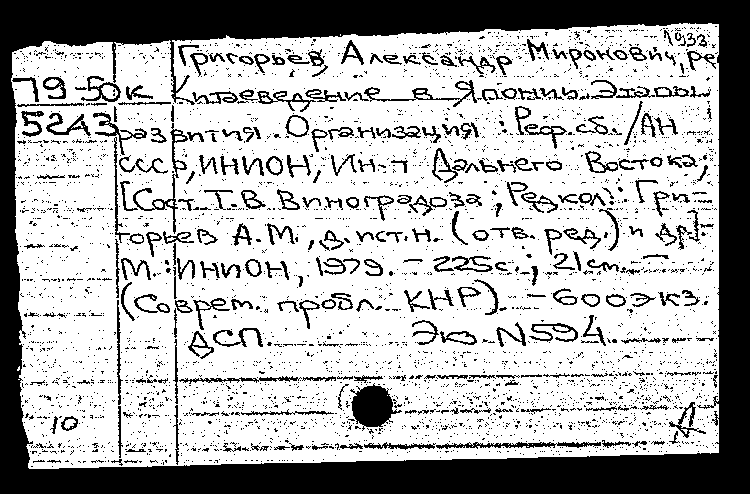 1933
Григорьев, Александр Миронович, ре
79-50к Китаеведение в Японии. Этапы
5243 развития. Организация : Реф.сб./АН
СССР, ИНИОН, Ин-т Дальнего Востока;
[Сост. Т.В. Виноградова; Редкол.: Гри-
горьев А.М., д.ист.н. (отв. ред.) и др.]-
М.: ИНИОН, 1979. - 225с.; 21см. -
(Соврем. пробл. КНР). - 600экз.
ДСП. Экз. N594.
10